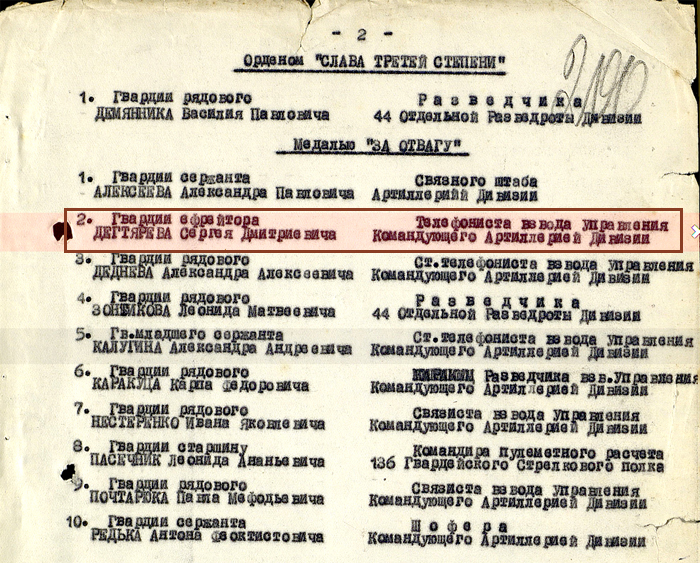 - 2 -
Орденом "СЛАВА ТРЕТЕЙ СТЕПЕНИ"
1. Гвардии рядового Разведчика
ДЕМЯННИКА Василия Павловича 44 Отдельной Разведроты Дивизии
Медалью "ЗА ОТВАГУ"
1. Гвардии сержанта Связного штаба
АЛЕКСЕЕВА Александра Павловича Артиллерийй Дивизии
2. Гвардии ефрейтора Телефониста взвода управления
ДЕГТЯРЕВА Сергея Дмитриевича Командующего Артиллерией Дивизии
3. Гвардии рядового Ст.телефониста взвода управления
ДЕДНЕВА Александра Алексеевича Командующего Артиллерией Дивизии
4. Гвардии рядового Разведчика
ЗОНТИКОВА Леонида Матвеевича 44 Отдельной Разведроты Дивизии
5. Гв.младшего сержанта Ст.телефониста взвода управления
КАЛУГИНА Александра Андреевича Командующего Артиллерией Дивизии
6. Гвардии рядового Разведчика взв.Управления
КАРАКУЦА Карпа Федоровича Командующего Артиллерией Дивизии
7. Гвардии рядового Связиста взвода Управления
НЕСТЕРЕНКО Ивана Яковлевича Командующего Артиллерией Дивизии
8. Гвардии старшину Командира пулеметного расчета
ПАСЕЧНИК Леонида Ананьевича 136 Гвардейского Стрелкового полка
9. Гвардии рядового Связиста взвода Управления
ПОЧТАРЮКА Павла Мефодьевича Командующего Артиллерией Дивизии
10. Гвардии сержанта Шофера
РЕДЬКА Антона Феоктистовича Командующего Артиллерией Дивизии